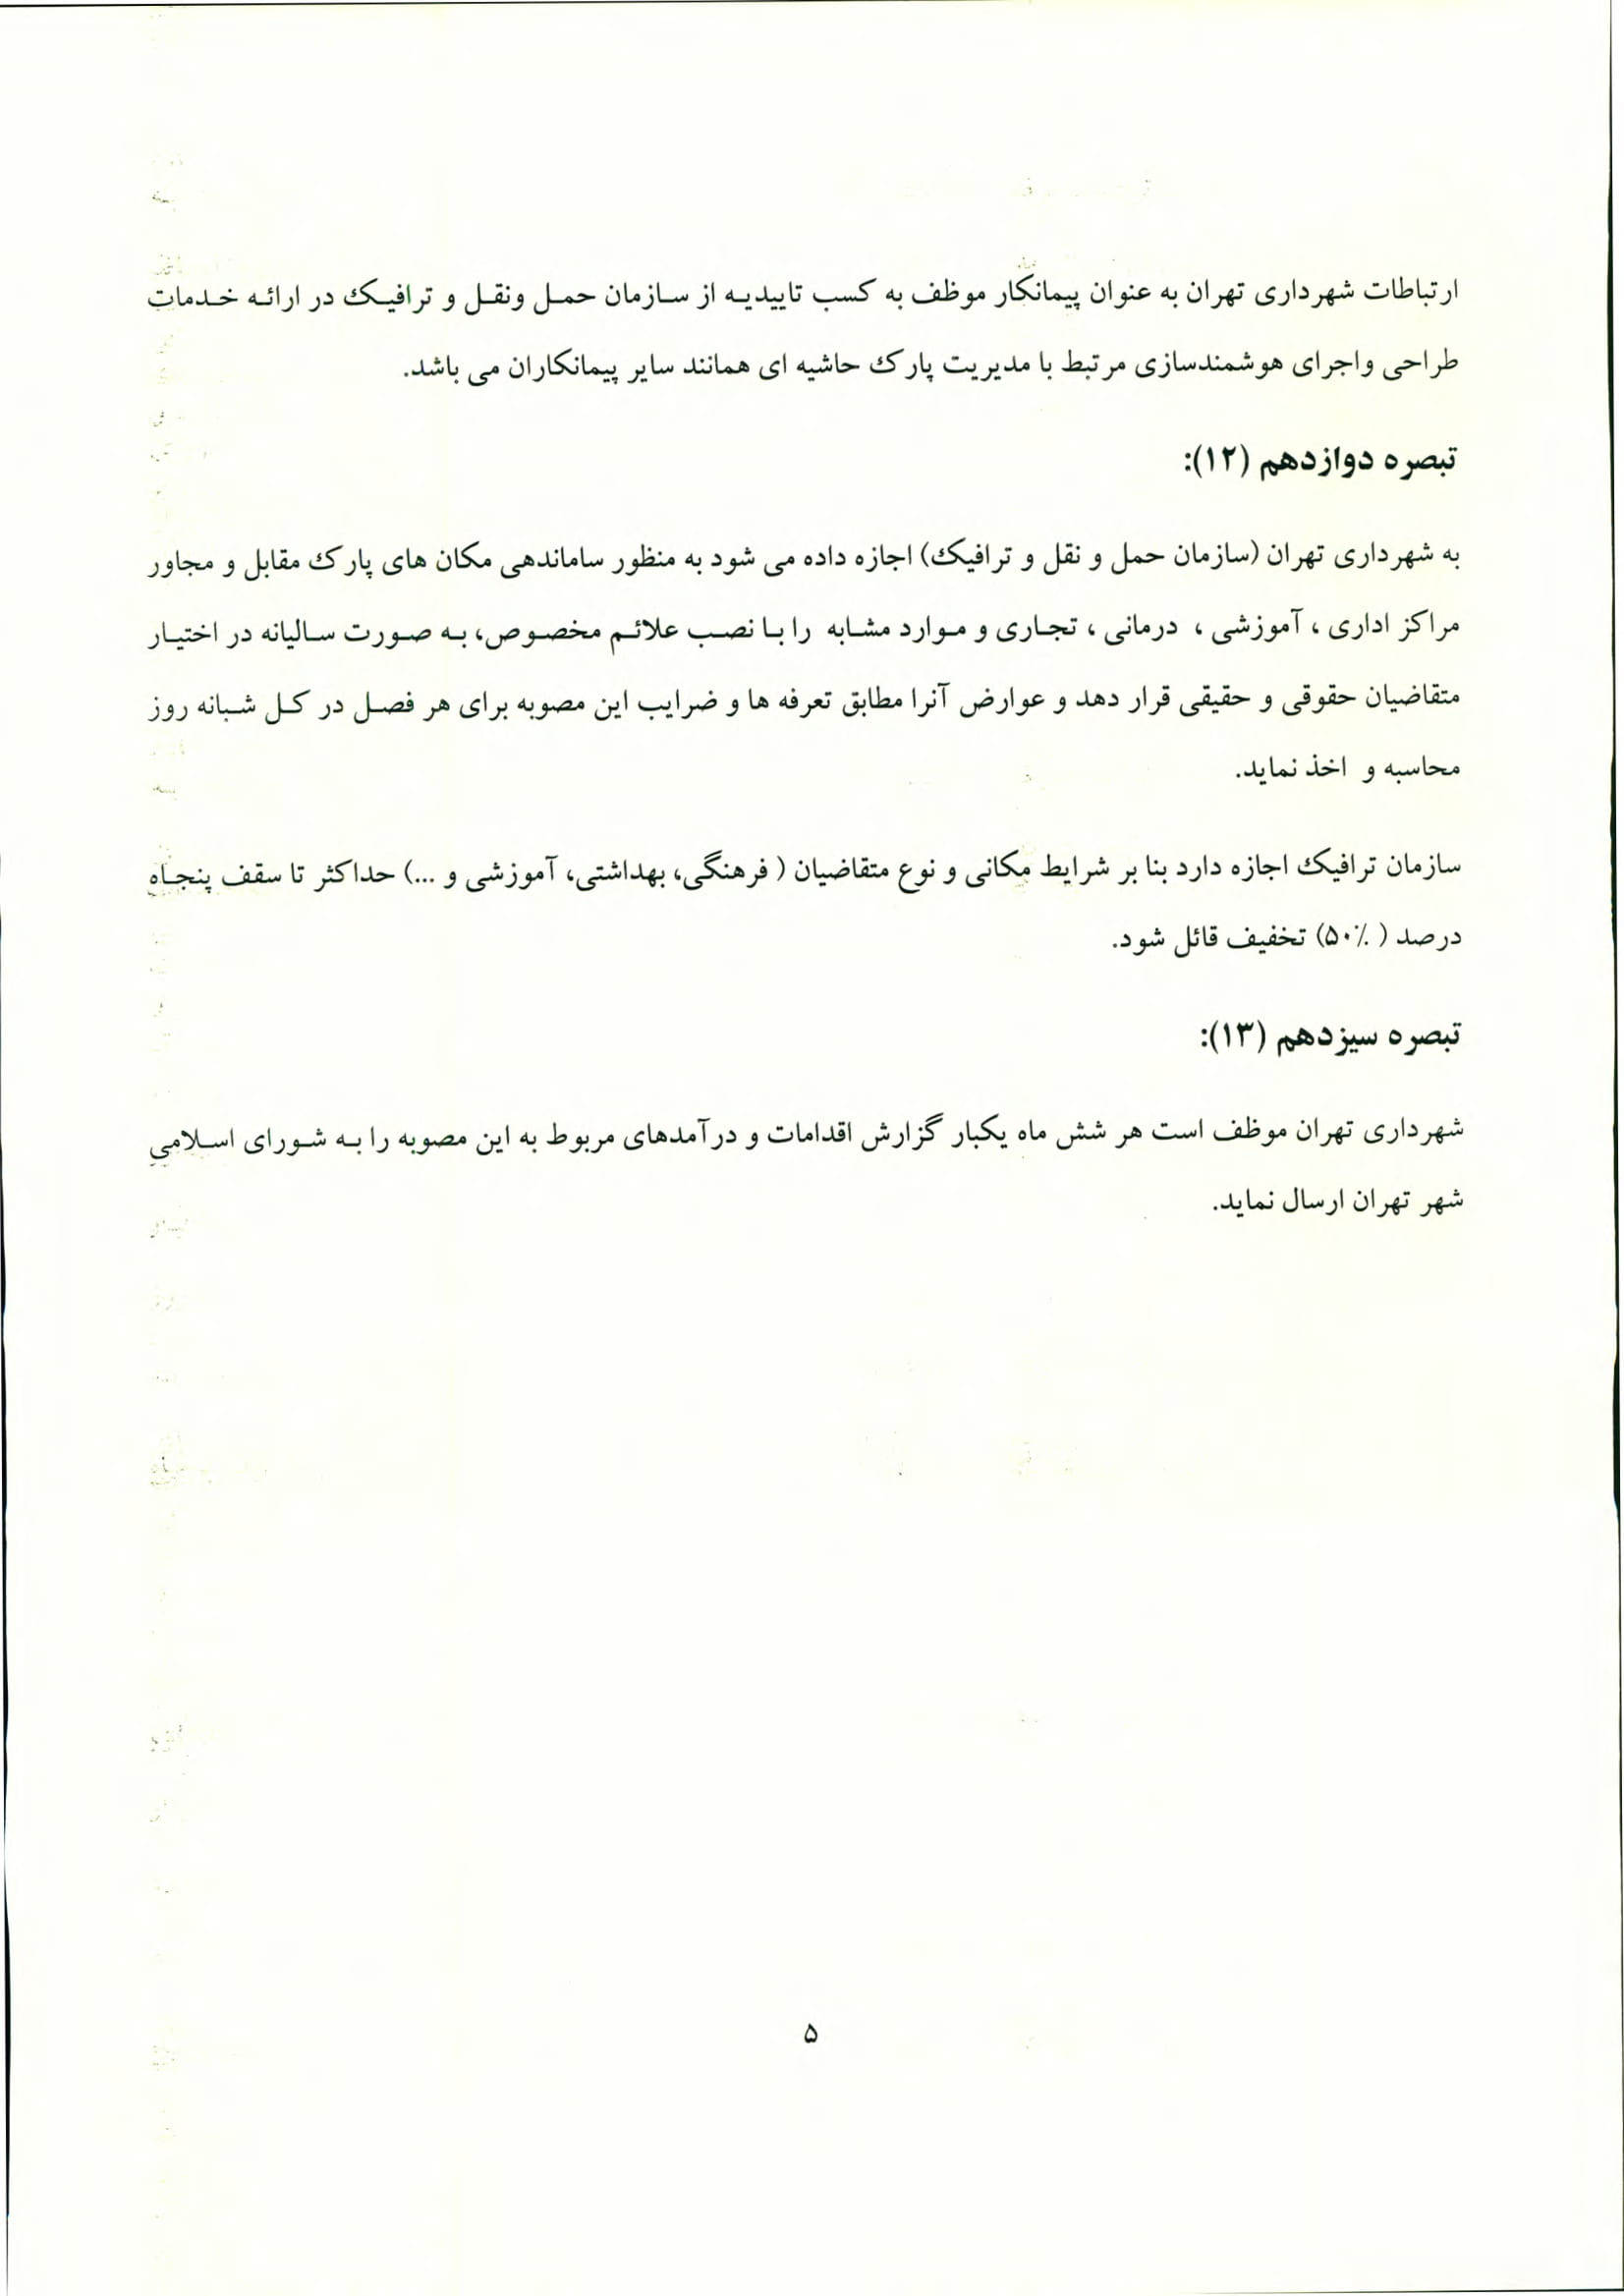 ارتباطات شهرداری تهران به عنوان پیمانکار موظف به کسب تاییدیه از سازمان حمل ونقل و ترافیک در ارائه خدمات
طراحی واجرای هوشمندسازی مرتبط با مدیریت پارک حاشیه ای همانند سایر پیمانکاران می باشد.
تبصره دوازدهم (۱۲):
به شهرداری تهران (سازمان حمل و نقل و ترافیک) اجازه داده می شود به منظور ساماندهی مکان های پارک مقابل و مجاور
مراکز اداری ، آموزشی ، درمانی ، تجاری و موارد مشابه را با نصب علائم مخصوص، به صورت سالیانه در اختیار
متقاضیان حقوقی و حقیقی قرار دهد و عوارض آنرا مطابق تعرفه ها و ضرایب این مصوبه برای هر فصل در کل شبانه روز
محاسبه و اخذ نماید.
سازمان ترافیک اجازه دارد بنا بر شرایط مکانی و نوع متقاضیان ( فرهنگی، بهداشتی، آموزشی و ...) حداکثر تا سقف پنجاه
درصد ( ۵۰٪) تخفیف قائل شود.
تبصره سیزدهم (۱۳):
شهرداری تهران موظف است هر شش ماه یکبار گزارش اقدامات و درآمدهای مربوط به این مصوبه را به شورای اسلامی
شهر تهران ارسال نماید.
۵